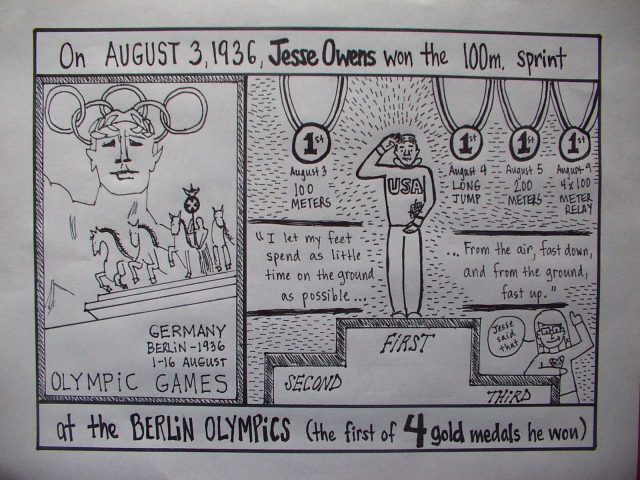 On AUGUST 3, 1936, Jesse Owens won the 100m. sprint
GERMANY
BERLIN - 1936
1-16 AUGUST
OLYMPIC GAMES
1st
August 3
100
METERS
1st
August 4
LONG
JUMP
1st
August 5
200
METERS
1st
August 9
4x100
METER
RELAY
USA
"I let my feet
spend as little
time on the ground
as possible...
...From the air, fast down,
and from the ground,
fast up."
Jesse
said
that
FIRST
SECOND
THIRD
at the BERLIN OLYMPICS (the first of 4 gold medals he won)